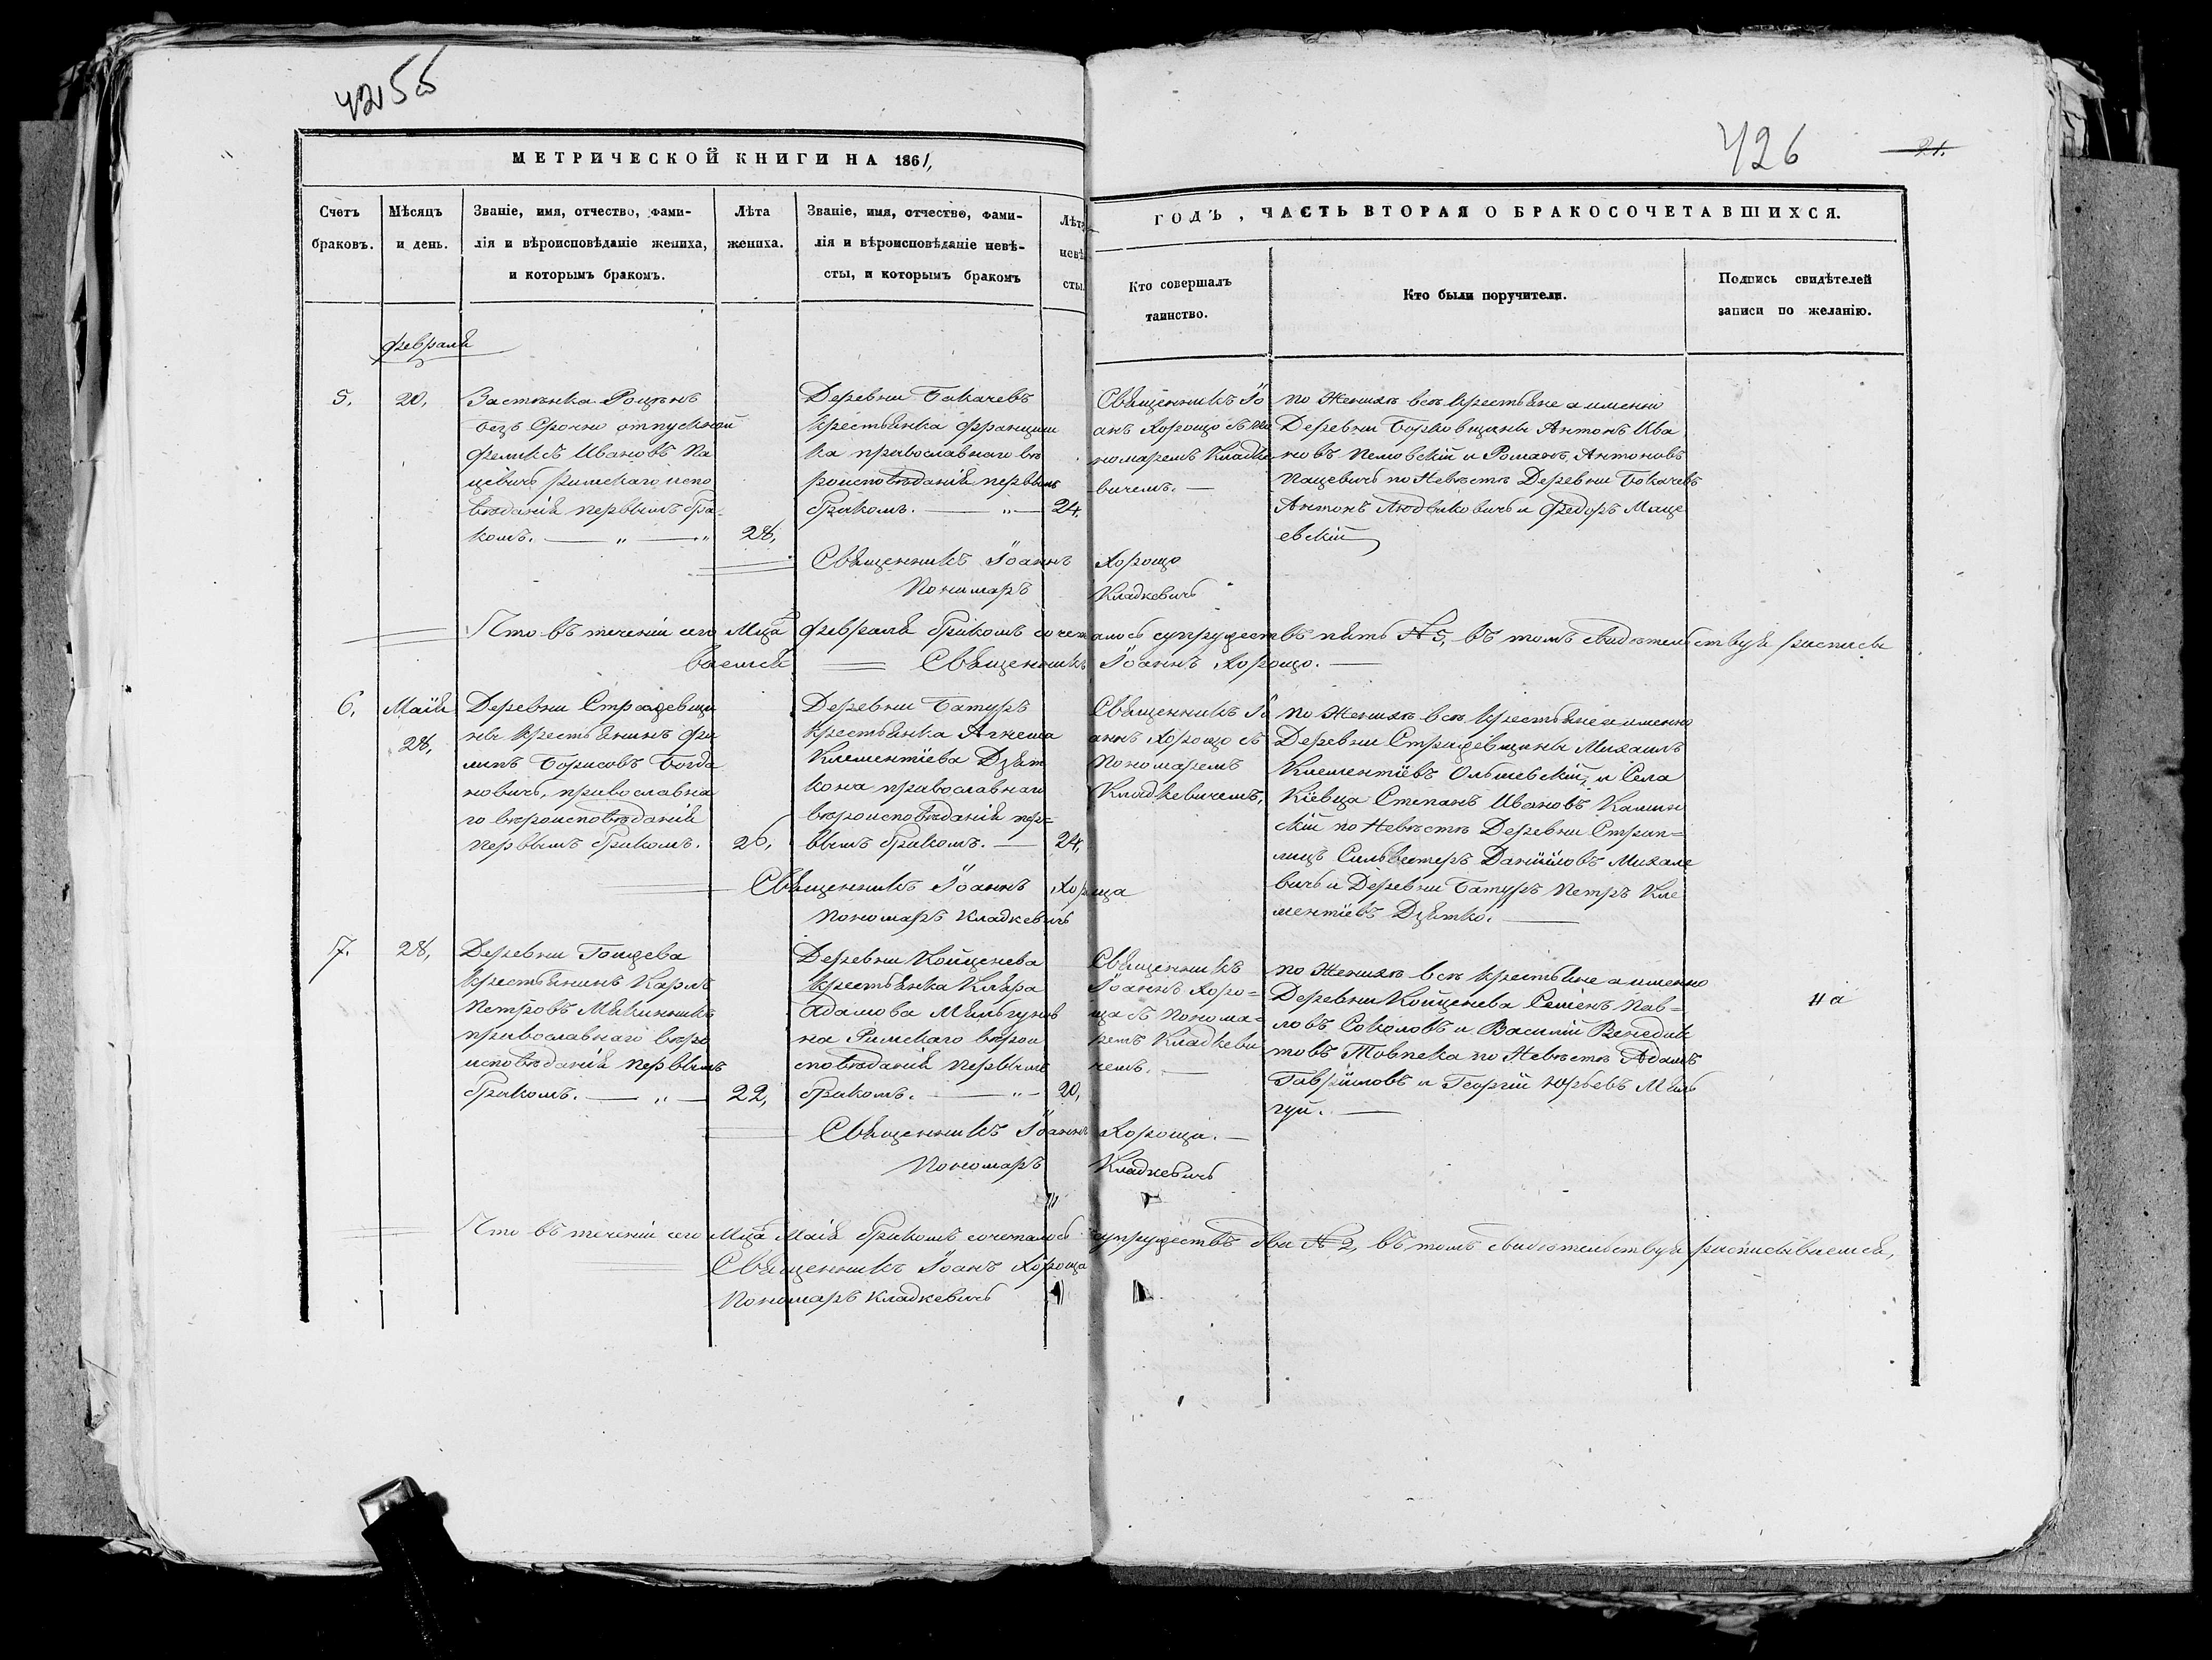 4255
МЕТРИЧЕСКОЙ КНИГИ НА 1861,
Счетъ браковъ.
Мѣсяцъ и день.
Званіе, имя, отчество, фами-
лія и вѣроисповѣданіе жениха,
и которымъ бракомъ.
Лѣта жениха.
Званіе, имя, отчество, фами-
лія и вѣроисповѣданіе невѣ-
сты, и которымъ бракомъ
Лѣта невѣ сты.
426
21.
ГОДЪ, ЧАСТЬ ВТОРАЯ О БРАКОСОЧЕТАВШИХСЯ.
Кто совершалъ
таинство.
Кто были поручители.
Подпись свидѣтелей
записи по желанію.
Февраля
5.
20,
Застѣнка
безъ Срочно отпускной
Феликсъ Ивановъ Па
цевичъ римскаго испо
вѣданія первымъ бра-
комъ. — „ — „
28,
Деревни Бокачевъ
крестьянка Францишк
ка православнаго вѣ
роисповѣданія первымъ
бракомъ. — „ —
24.
Священникъ Іо
анъ Хорощо съ по
номаремъ Кладке
вичемъ. —
по Женихѣ всѣ крестьяне а именно
Деревни Борковщины Антонъ Ива
новъ и Романъ Антоновъ
Пацевичъ по Невѣстѣ Деревни Бокачевъ
Антонъ Людвиковичъ и Федоръ Маце
евскій
Священникъ Іоаннъ Хорощо
Пономаръ Кладкевичъ
Что въ теченіи сего Мца Февраля бракомъ сочеталось супружествъ пять № 5, въ томъ свидѣтельствуя расписы
ваемся Священникъ Іоаннъ Хорощо. —
6.
Маія
28,
Деревни
ны крестьянинъ Фи
липъ Борисовъ Богда
новичъ, православна
го вѣроисповѣданія
первымъ бракомъ.
26,
Деревни Батуръ
крестьянка Агнеша
Клементіева Дзят
кона православнаго
вѣроисповѣданія пер=
вымъ бракомъ. —
24,
Священникъ Іо
аннъ Хорощо съ
Пономаремъ
Кладкевичемъ,
по Женихѣ всѣ крестьяне а именно
Деревни Михаилъ
Клементіевъ Ольшевскій, и Села
Кіевца Степанъ Ивановъ Камин
скій по Невѣстѣ Деревни Страп=
лицъ Сильвестеръ Даніиловъ Михале
вичъ и Деревни Батуръ Петръ Кле
ментіевъ Дзятко. —
Священникъ Іоаннъ Хороща
Пономаръ Кладкевичъ
7.
28,
Деревни Гощева
крестьянинъ Карлъ
Петровъ
православнаго вѣро
исповѣданія первымъ
бракомъ. — „ —
22,
Деревни Койценева
крестьянка Клара
Адамова Мяльгунов
на Римскаго вѣрои
сповѣданія первымъ
бракомъ. — „ —
20,
Священникъ
Іоаннъ Хоро=
ща съ Понома=
ремъ Кладкеви
чемъ. —
по Женихѣ всѣ крестьяне а именно
Деревни Койценева Семенъ Пав=
ловъ Соколовъ и Василій Венедик
товъ по Невѣстѣ Адамъ
Гавріиловъ и Георгій Юрьевъ Мяль
гуй. —
Священникъ Іоаннъ Хороща. —
Пономаръ Кладкевичъ
Что въ теченіи сего Мца Маія бракомъ сочеталось супружествъ два № 2, въ томъ свидѣтельствуя расписываемся,
Священникъ Іоанъ Хороща
Пономаръ Кладкевичъ